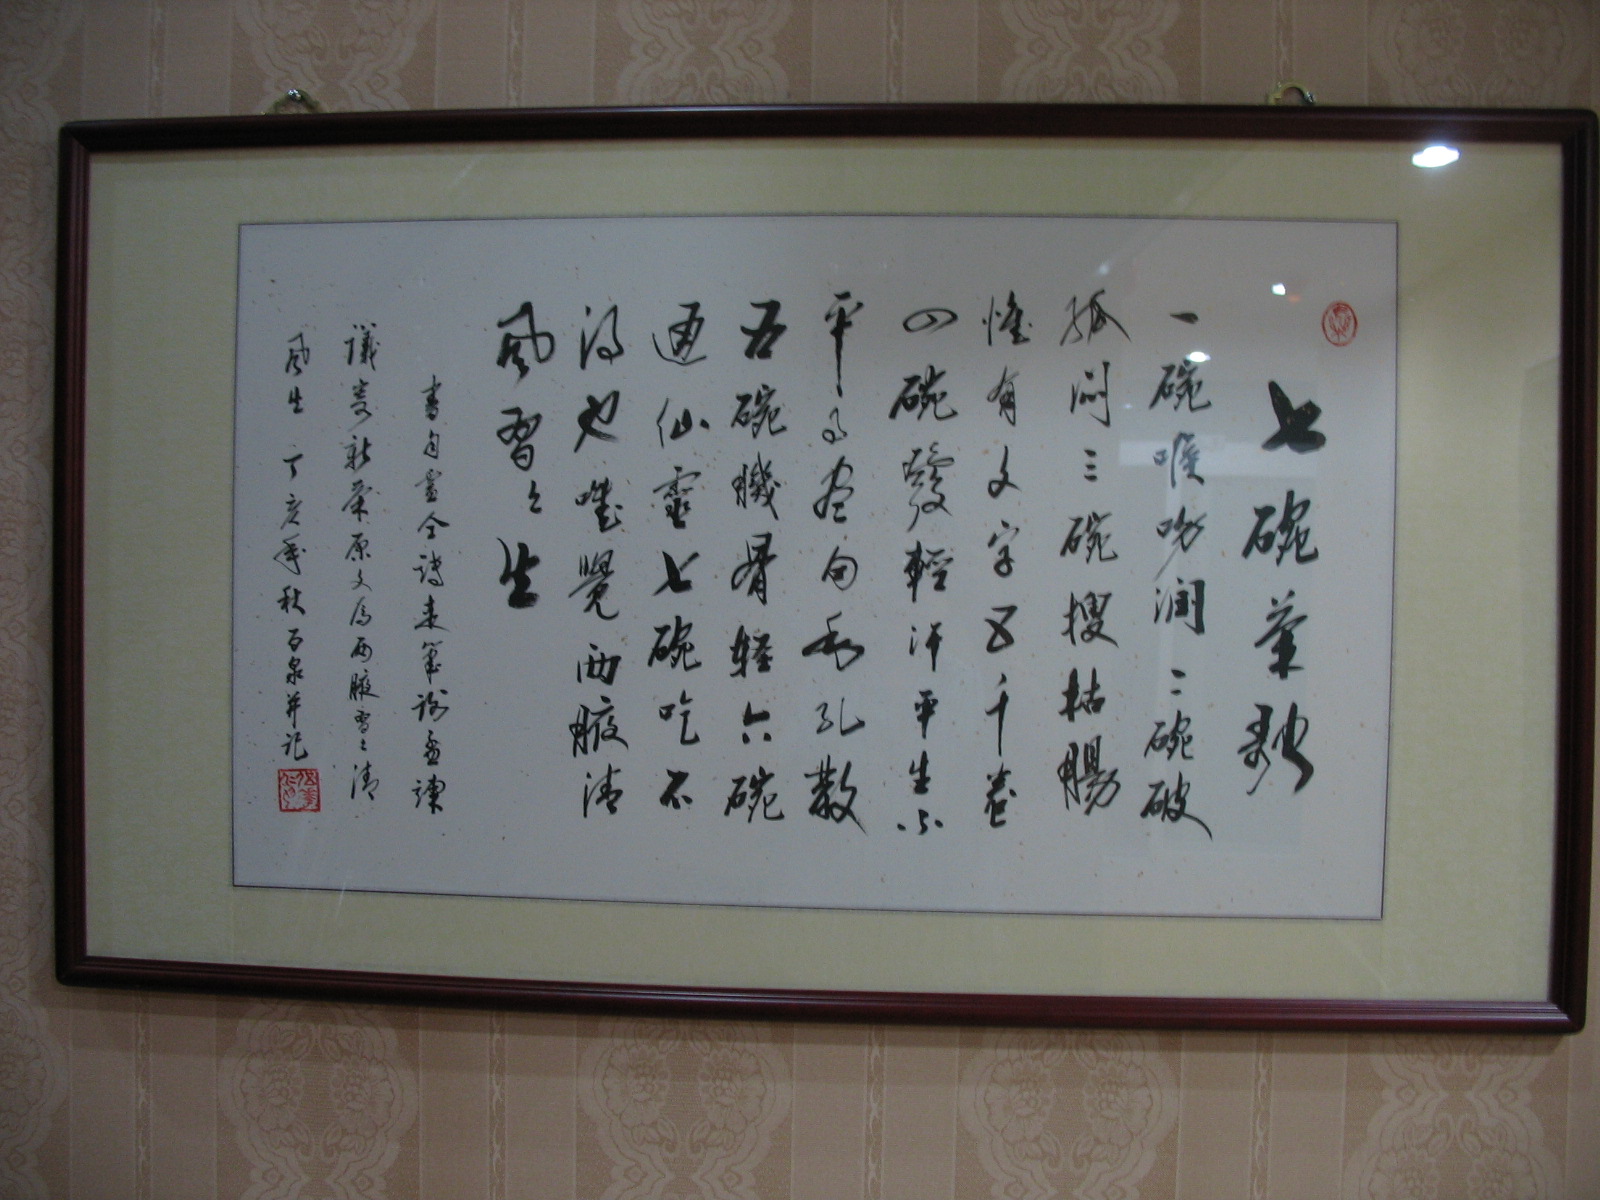 七碗茶歌
一碗喉吻潤二碗破
孤悶三碗搜枯腸
惟有文字五千卷
四碗發輕汗平生不
平事盡向毛孔散
五碗肌骨輕六碗
通仙靈七碗吃不
得也唯覺兩腋清
風習〻生
書自盧仝詩走筆謝孟諫
議寄新茶原文為兩腋習〻清
風生 丁亥年秋 石泉并記